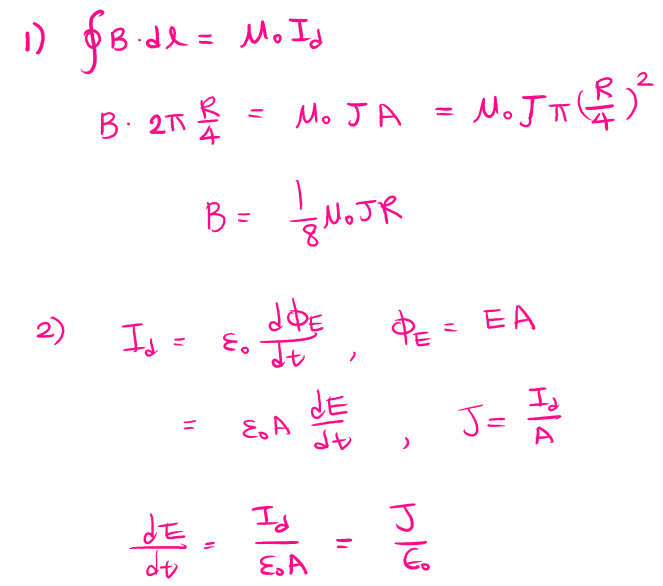 1) ∮B·dl = μ₀I_d
B· 2π R/4 = μ₀ J A = μ₀ J π (R/4)²
B = 1/8 μ₀JR
2) I_d = ε₀ dϕ_E/dt , ϕ_E = EA
= ε₀A dE/dt , J = I_d/A
dE/dt = I_d/ε₀A = J/ϵ₀